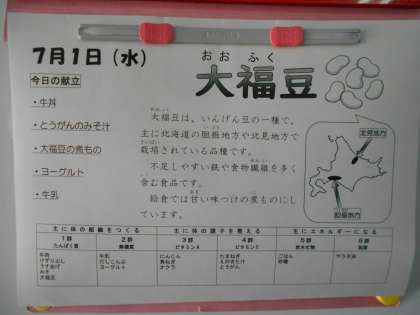 7月1日（水）
おお ふく
大福豆
今日の献立
・牛丼
・とうがんのみそ汁
・大福豆の煮もの
・ヨーグルト
・牛乳
大福豆は、いんげん豆の一種で、
主に北海道の胆振地方や北見地方で
栽培されている品種です。
不足しやすい鉄や食物繊維を多く
含む食品です。
給食では甘い味つけの煮ものにし
ています。
北見地方
胆振地方
主に体の組織をつくる 主に体の調子を整える 主にエネルギーになる
1群 2群 3群 4群 5群 6群
たんぱく質 無機質 ビタミンA ビタミンC 炭水化物 脂質
牛肉 牛乳 にんじん たまねぎ ごはん サラダ油
けずりぶし だしこんぶ 青ねぎ えのきたけ 砂糖
うすあげ ヨーグルト オクラ とうがん
みそ
大福豆